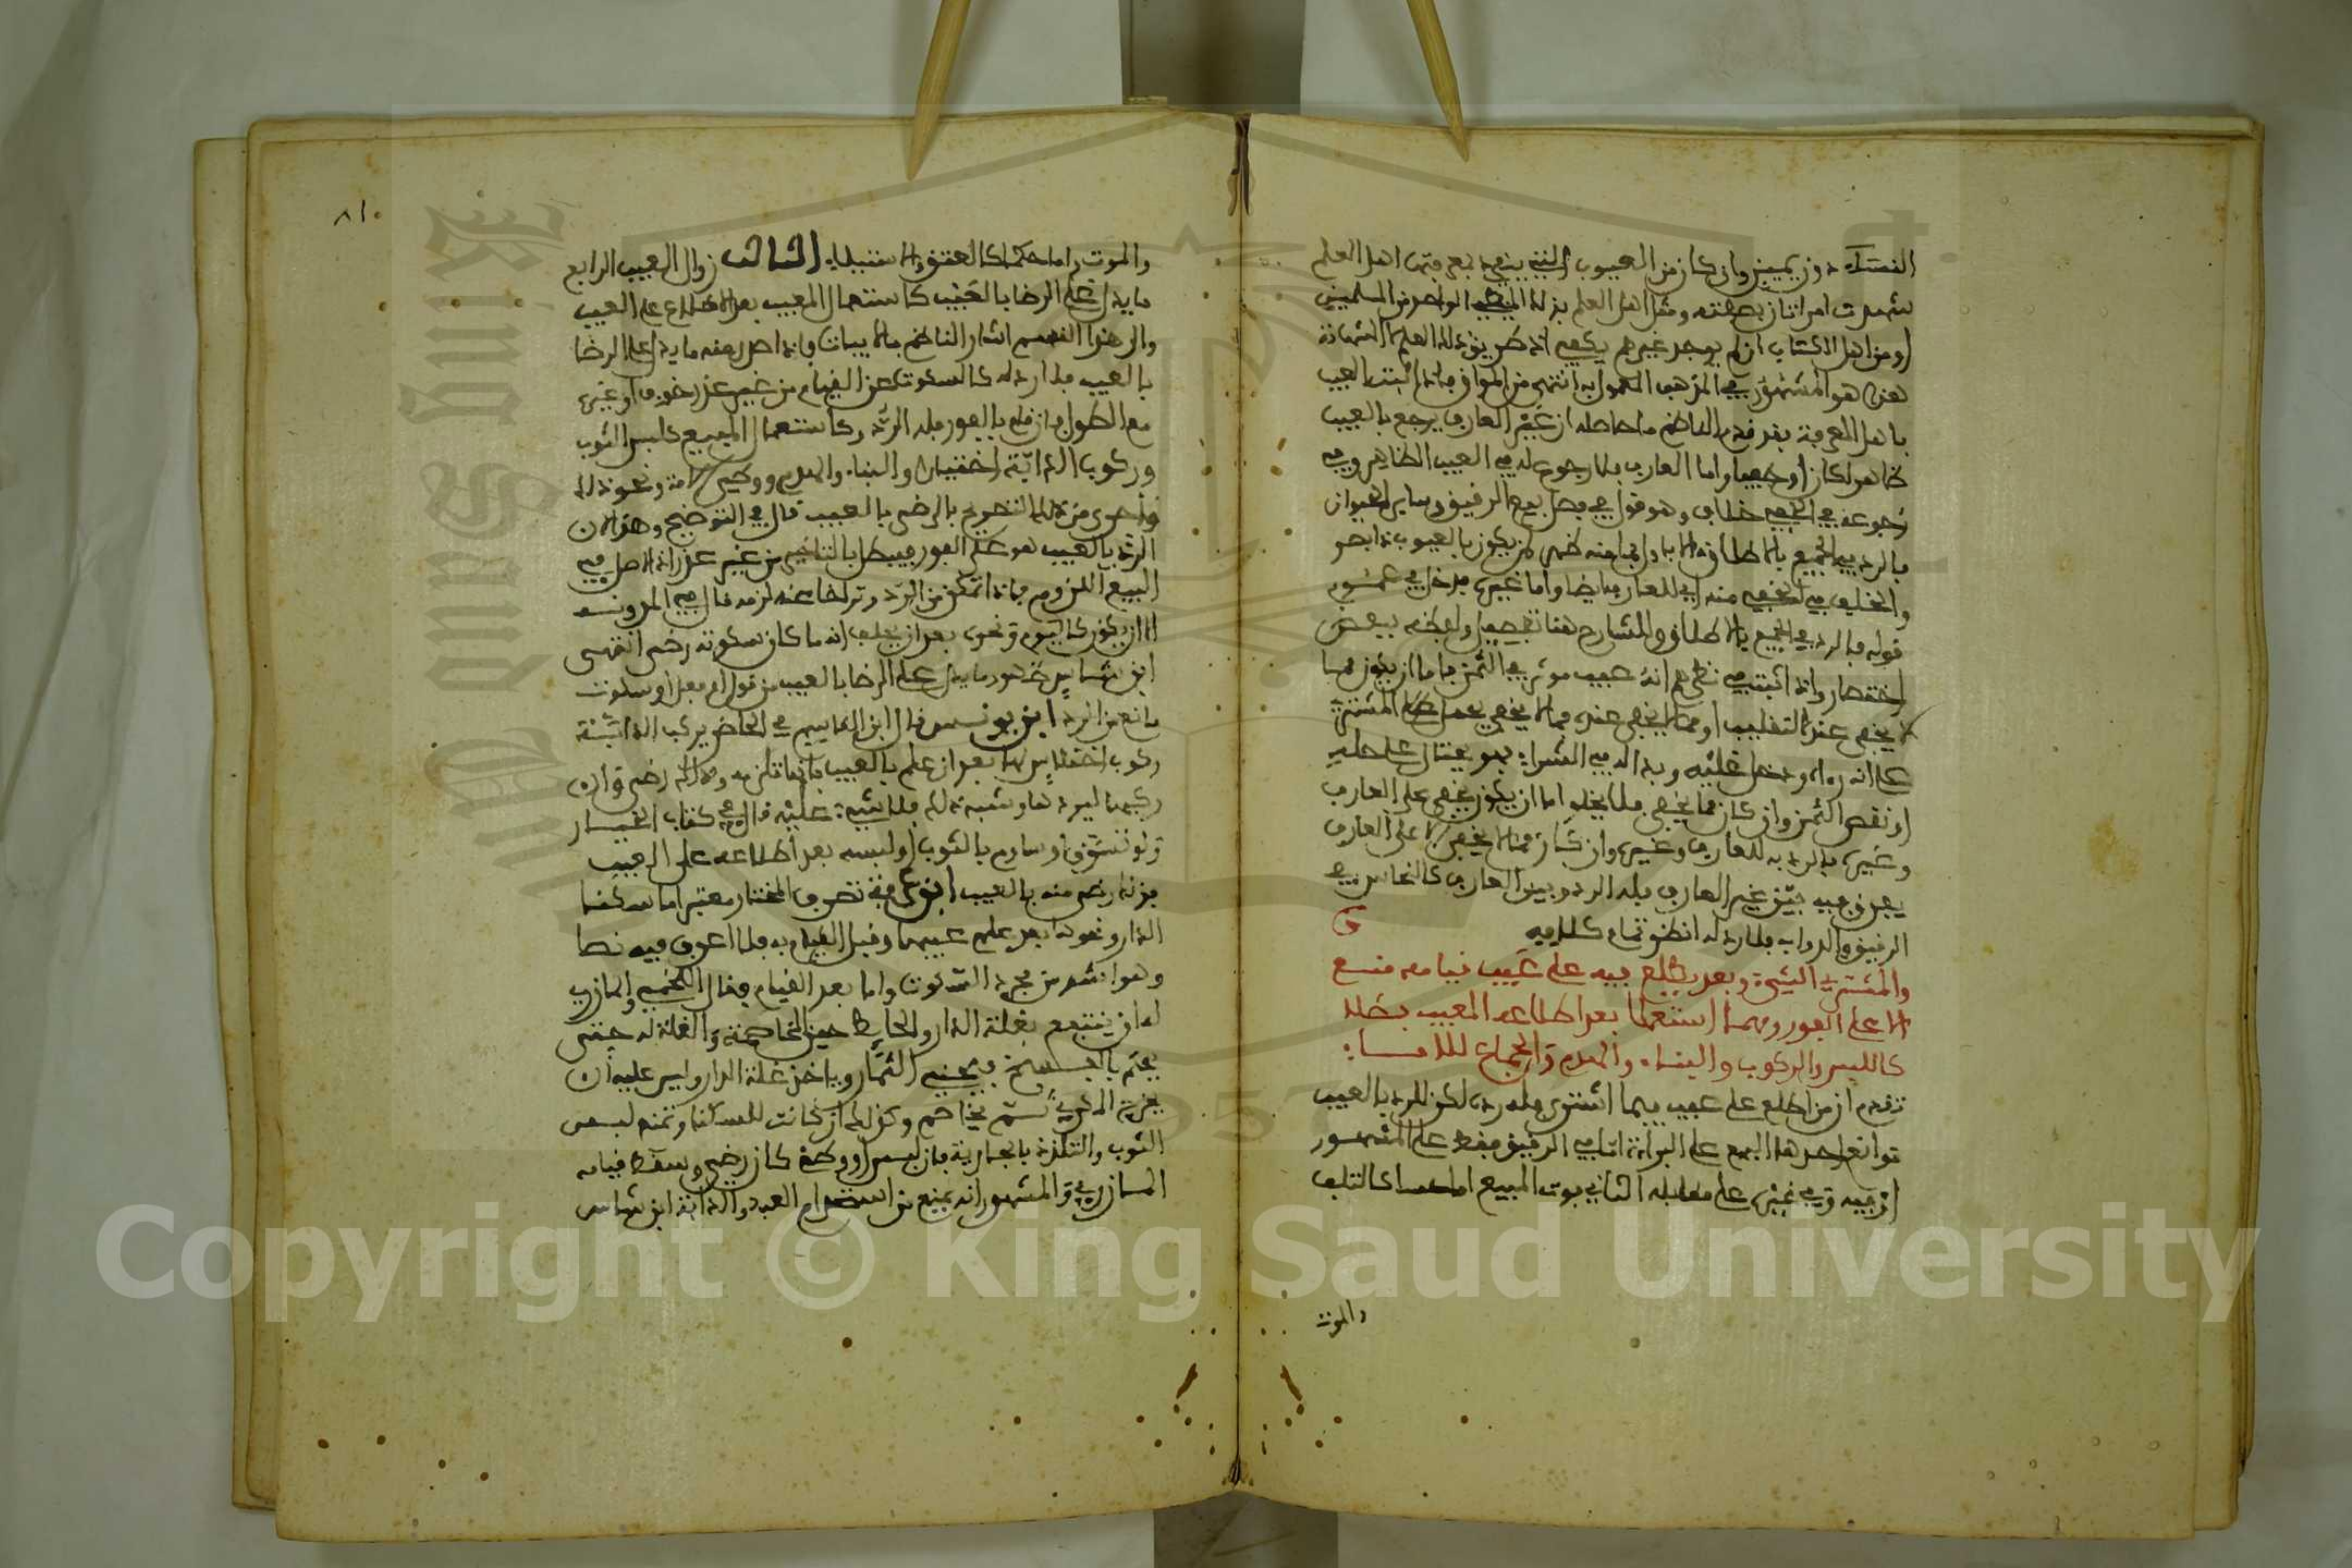 النساء دون يمين وان كان من العيوب التي ينفرد بمعرفتها اهل العلم
شهدت امراتان بصفته ومثل اهل العلم بذلك الواحد من المسلمين
او من اهل الكتاب ان لم يوجد غيرهم يكفي اذ طريق ذلك العلم لا الشهادة
هذا هو المشهور في المذهب المعمول به انتهى من المواق فاذا اثبت العيب
باهل المعرفة بقد قدم الناظم ما حاصله ان غير العارف يرجع بالعيب
ظاهرا كان او خفيا واما العارف فلا رجوع له في العيب الظاهر وفي
رجوعه في الخفي خلاف وهو قوله في فصل بيع الرقيق وساير الحيوان
فالرد في الجميع بالاطلاق الا باول منه ظهر ثم يكون بالعيوب ذا بصر
والخلف في الخفي منه اي للعارف ايضا واما غيره فدخل في عموم
قوله فالرد في الجميع بالاطلاق وللشارح هنا تفصيل ولفظه ببعض
اختصار واذا اثبت في نظرهم انه عيب موثر في الثمن فاما ان يكون مما
لا يخفى عند التقليب او مما يخفى عنده فما لا يخفى يحمل المشتري
على انه رءاه ودخل عليه وبدا له في الشراء فهو يحتال على حله
او نقص الثمن وان كان مما يخفى فلا يخلو اما ان يكون يخفى على العارف
وغيره فالرد به للعارف وغيره وان كان مما لا يخفى الا على العارف
يفرق فيه بين غير العارف فله الرد وبين العارف كالنخاس في
الرقيق والدواب فلا رد له انظر تمام كلامه
والمشتري الشيء وبعد يطلع فيه على عيب قيامه منع
الا على الفور ومهما استعملا بعد اطلاعه المعيب بطلا
كاللبس والركوب والبناء والهدم والجماع للاماء
تقدم ان من اطلع على عيب فيما اشترى فله رده لكن للرد بالعيب
موانع احدها البيع على البراءة اما في الرقيق فقط على المشهور
او فيه وفي غيره على مقابله الثاني فوت المبيع اما حسا كالتلف
والموت
٨١٠
والموت واما حكما كالعتق والاستيلاد الثالث زوال العيب الرابع
ما يدل على الرضا بالعيب كاستعمال المعيب بعد الاطلاع على العيب
والى هذا القسم اشار الناظم بالابيات فاذا حصل منه ما يدل على الرضا
بالعيب فلا رد له كالسكوت عن القيام من غير عذر خوف او غيره
مع الطول فان قام بالفور فله الرد وكاستعمال المبيع كلبس الثوب
وركوب الدابة اختيارا والبناء والهدم ووطء الامة ونحو ذلك
واحرى من ذلك التصريح بالرضى بالعيب قال في التوضيح وهذا لان
الرد بالعيب هو على الفور فيبطل بالتاخير من غير عذر اذ الاصل في
البيع اللزوم فاذا تمكن من الرد وتراخا عنه لزمه قال في المدونة
الا ان يكون كاليوم ونحوه بعد ان يحلف انه ما كان سكوته رضى انتهى
ابن شاس ظهور ما يدل على الرضا بالعيب من قول او فعل او سكوت
مانع من الرد ابن يونس قال ابن القاسم في الحاضر يركب الدابة
ركوب احتباس لها بعد ان علم بالعيب فانها تلزمه وذلك رضى وان
ركبها ليردها وشبه ذلك فلا شيء عليه قال في كتاب الخيار
ولو تسوق او ساوم بالثوب او لبسه بعد اطلاعه على العيب
فذلك رضى منه بالعيب ابن عرفة تصرف المختار معتبر اما سكنا
الدار ونحوها بعد علم عيبها وقبل القيام به فلا اعرف فيه نصا
وهو اشد من مجرد السكوت واما بعد القيام فقال اللخمي والمازري
له ان ينتفع بغلة الدار والحايط حين المخاصمة والغلة له حتى
يحكم بالفسخ فيجني الثمار وياخذ غلة الدار وليس عليه ان
يخرج المكري ثم يخاصم وكذلك ان كانت للسكنا ومنه لبس
الثوب والتلذذ بالجارية فان لبس او وطئ كان رضى وسقط قيامه
المازري والمشهور انه يمنع من استخدام العبد والدابة ابن شاس